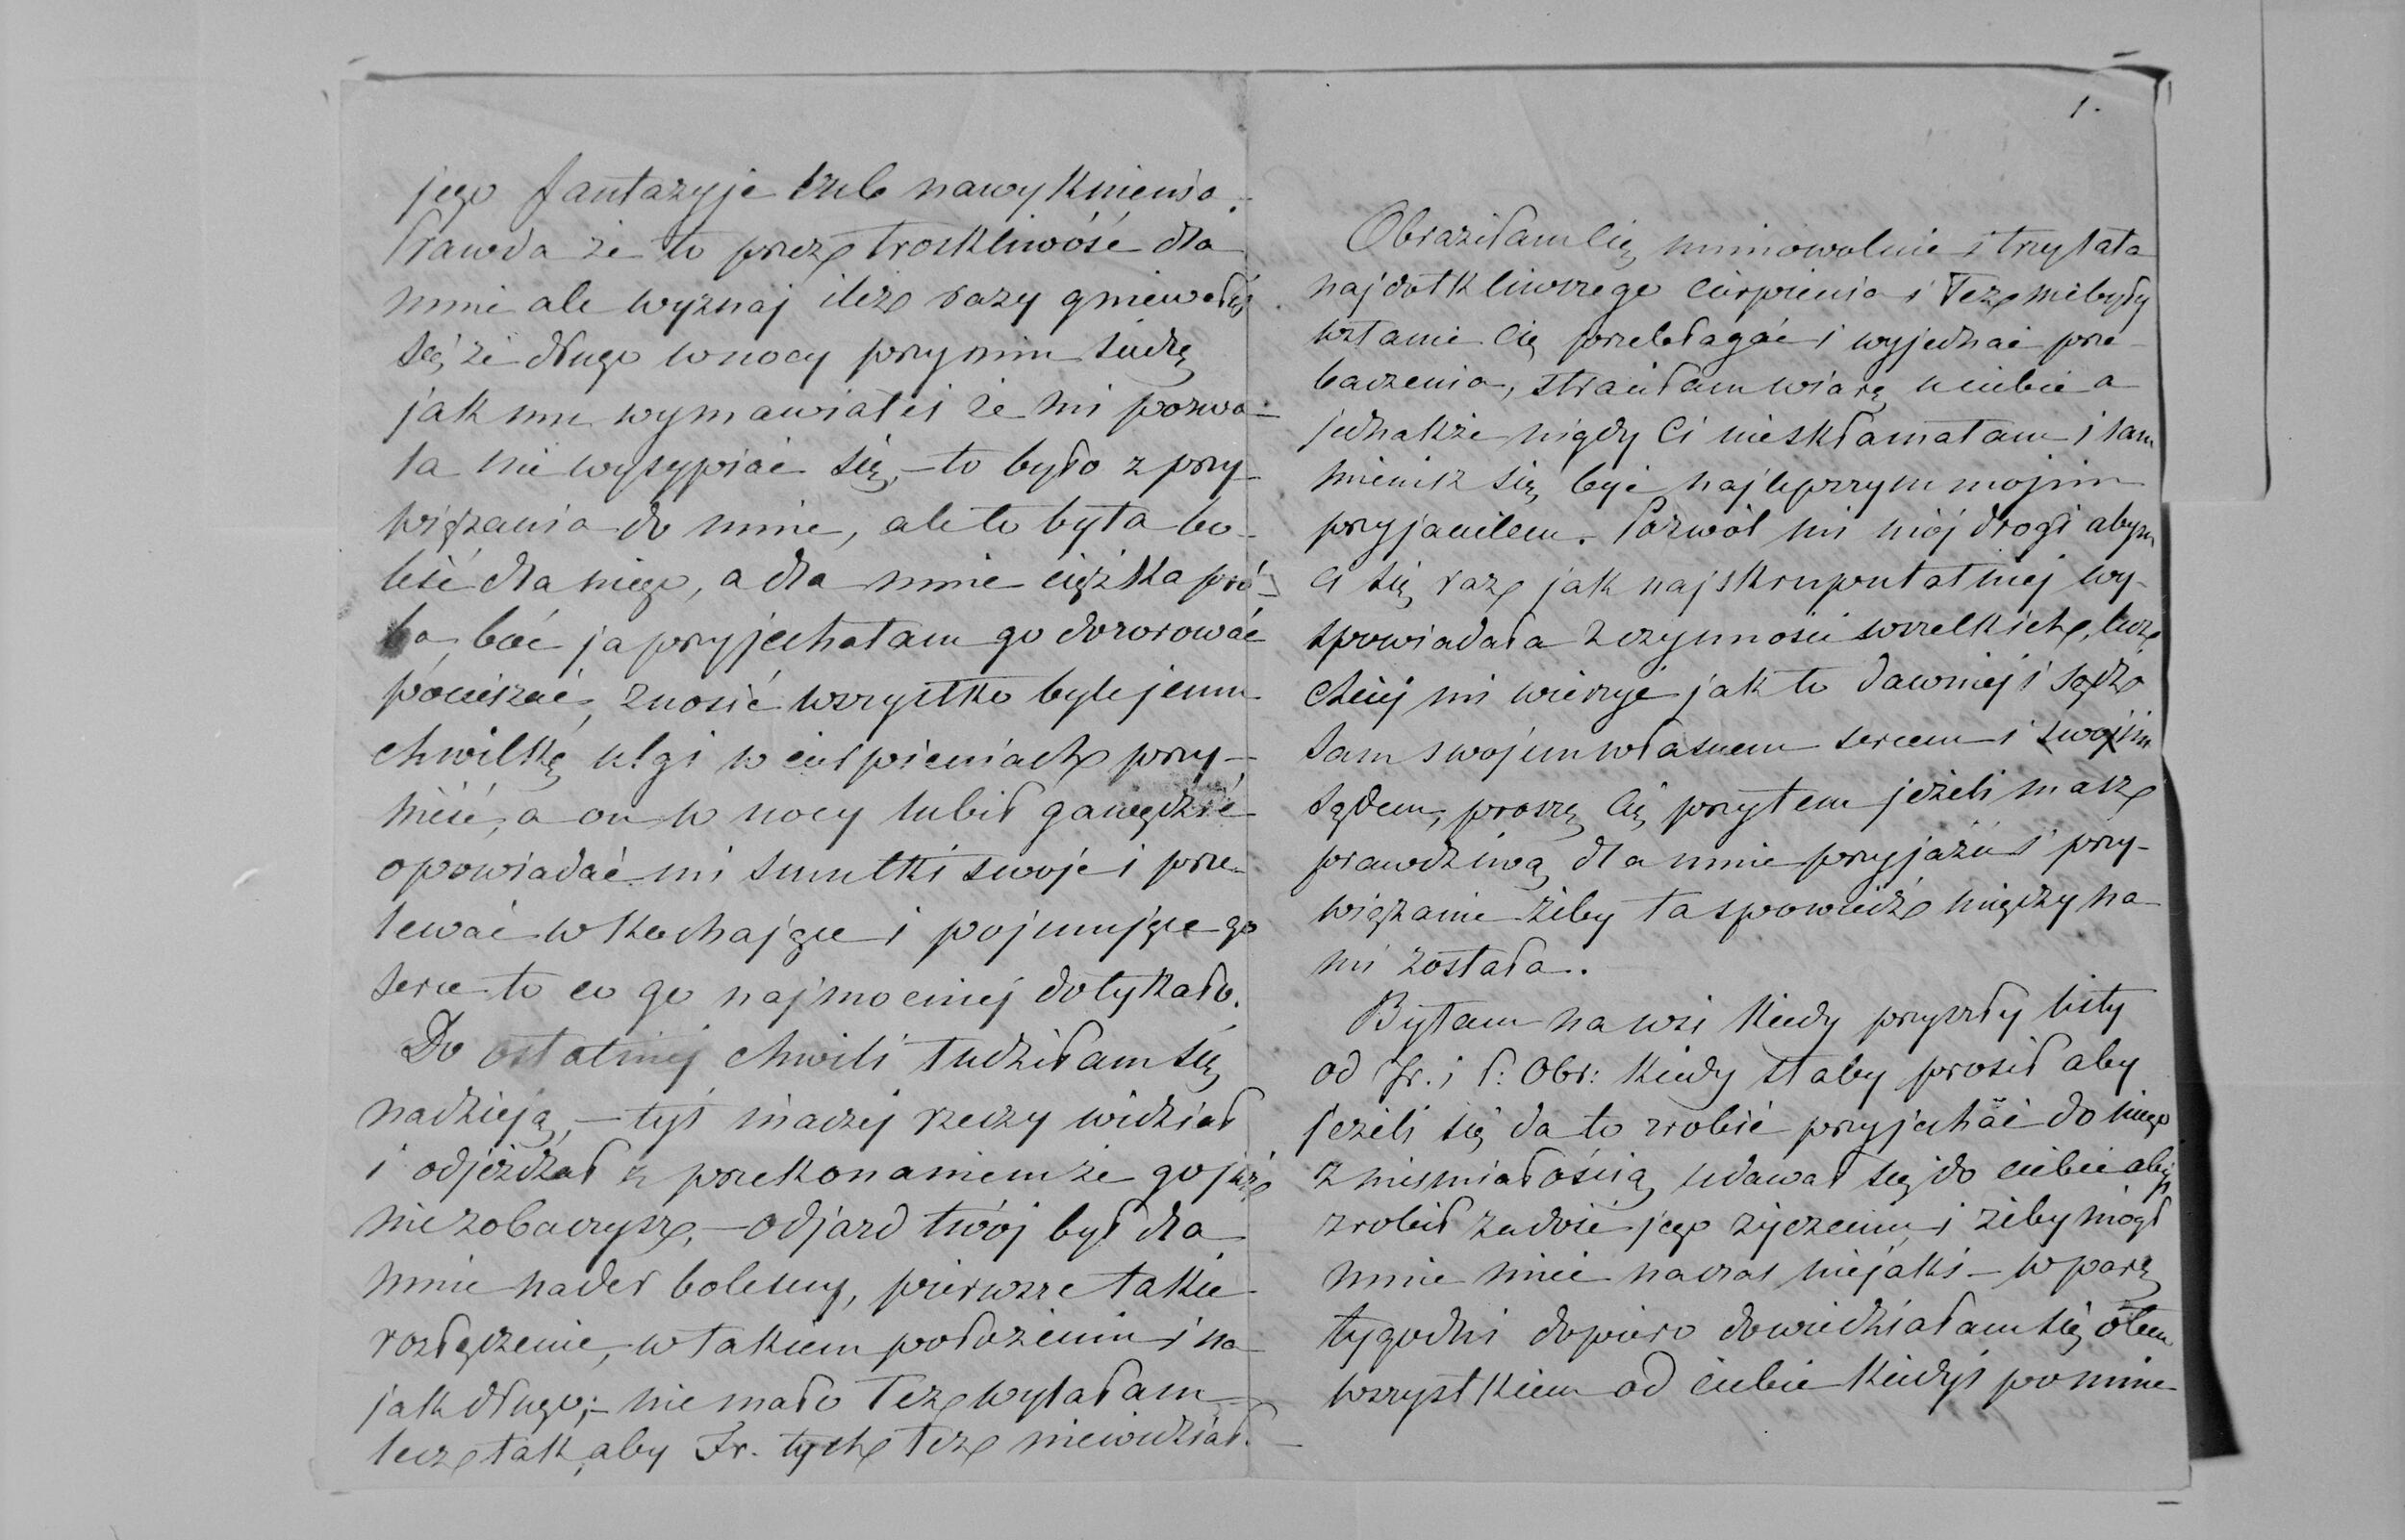 jego fantazyje lub nawyknienia.
Prawda że to przez troskliwość dla
mnie ale wyznaj ileż razy gniewałeś
się że długo w nocy przy nim siedzę
jak mu wymawiałeś że mi pozwa-
la nie wysypiać się, – to było z przy-
wiązania do mnie, ale to była bo-
leść dla niego, a dla mnie ciężka pró-
ba, boć ja przyjechałam go dozorować
pocieszać, znosić wszystko byle jemu
chwilkę ulgi w cierpieniach przy-
nieść, a on w nocy lubił gawędzić
opowiadać mi smutki swoje i prze-
lewać w kochające i pojmujące go
serce to co go najmocniej dotykało.
Do ostatniej chwili łudziłam się
nadzieją, – tyś inaczej rzeczy widział
i odjeżdżał z przekonaniem że go już
nie zobaczysz, – odjazd twój był dla
mnie nader bolesny, pierwsze takie
rozłączenie, w takiem położeniu i na
jak długo; – nie mało łez wylałam
lecz tak, aby Fr. tych łez niewidział. –
1.
Obraziłam Cię mimowolnie i trzy lata
najdotkliwszego cierpienia i łez nie były
wstanie Cię przebłagać i wyjednać prze-
baczenia, straciłam wiarę u ciebie a
jednakże nigdy Ci nieskłamałam i sam
mienisz się być najlepszym mojim
przyjacielem. Pozwól mi mój drogi abym
Ci się raz jak najskrupulatniej wy-
spowiadała z czynności wszelkich, lecz
chciej mi wierzyć jak to dawniej i sądź
sam swojim własnem sercem i swojim
sądem, proszę Cię przytem jeżeli masz
prawdziwą dla mnie przyjaźń i przy-
wiązanie żeby ta spowiedź między na-
mi została.
Byłam na wsi kiedy przyszły listy
od Fr. i P: Obr: kiedy słaby prosił aby
jeżeli się da to zrobić przyjechać do niego
z nieśmiałością udawał się do ciebie abyś
zrobił zadość jego życzeniu i żeby mógł
mnie mieć na czas niejaki – w parę
tygodni dopiero dowiedziałam się o tem
wszystkiem od ciebie kiedyś po mnie